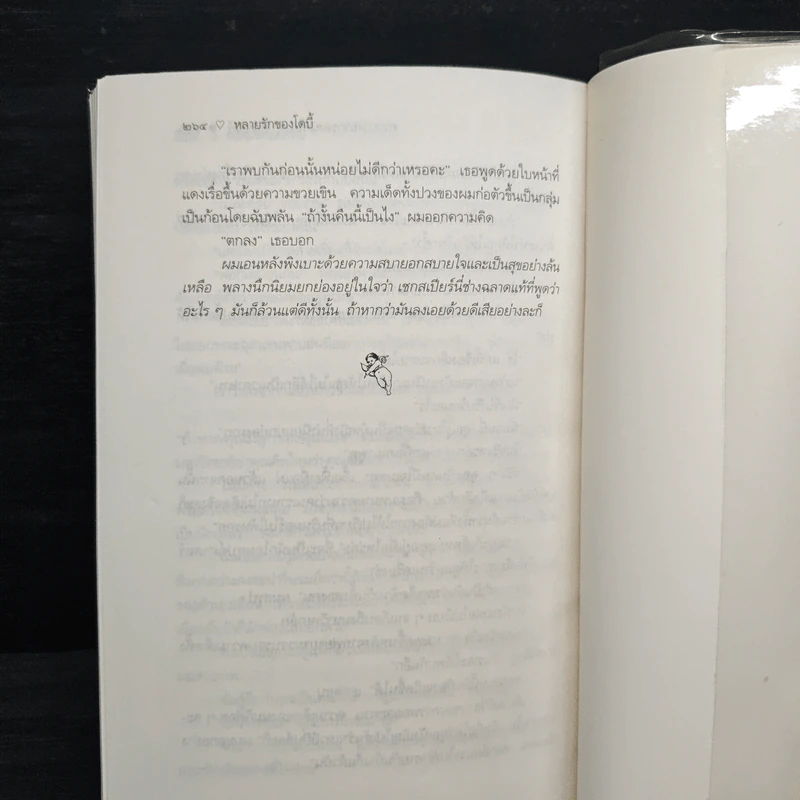 ๒๖๔ ♡ หลายรักของโดบี้
"เราพบกันก่อนนั้นหน่อยไม่ดีกว่าเหรอคะ" เธอพูดด้วยใบหน้าที่
แดงเรื่อขึ้นด้วยความขวยเขิน ความเด็ดทั้งปวงของผมก่อตัวขึ้นเป็นกลุ่ม
เป็นก้อนโดยฉับพลัน "ถ้างั้นคืนนี้เป็นไง" ผมออกความคิด
"ตกลง" เธอบอก
ผมเอนหลังพิงเบาะด้วยความสบายอกสบายใจและเป็นสุขอย่างล้น
เหลือ พลางนึกนิยมยกย่องอยู่ในใจว่า เชกสเปียร์นี่ช่างฉลาดแท้ที่พูดว่า
อะไร ๆ มันก็ล้วนแต่ดีทั้งนั้น ถ้าหากว่ามันลงเอยด้วยดีเสียอย่างละก็